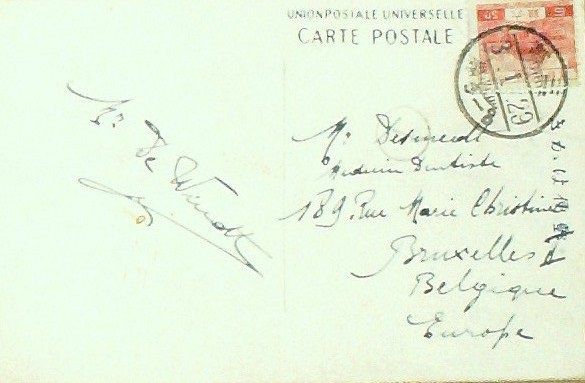 UNION POSTALE UNIVERSELLE
CARTE POSTALE
3.1.29
Mr De Windt
Mr Desmedt
Medecin Dentiste
189 Rue Marie Christine
Bruxelles
Belgique
Europe